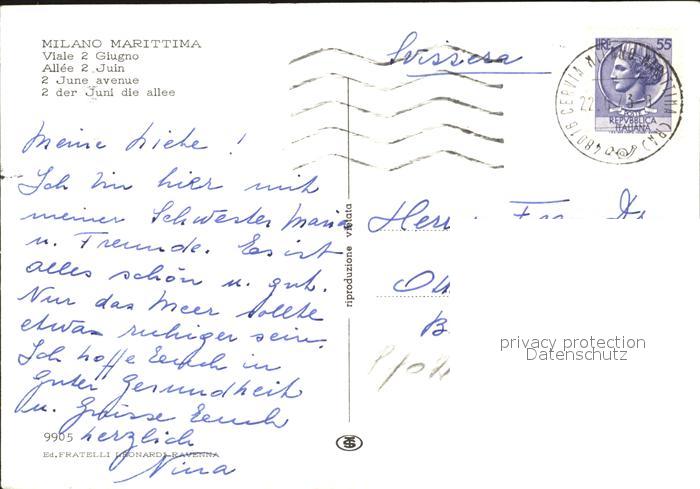 MILANO MARITTIMA
Viale 2 Giugno
Allée 2 Juin
2 June avenue
2 der Juni die allee
Svissera
LIRE 55
POSTE
REPVBBLICA
ITALIANA
48016 CERVIA MILANO MARITTIMA (RA)
Meine Liebe!
Ich bin hier mit
meiner Schwester Maria
u. Freunde. Es ist
alles schön u. gut.
Nur das Meer sollte
etwas ruhiger sein.
Ich hoffe Eeuch in
guter Gesundheit
u. Grüsse Eeuch
herzlich
Nina
riproduzione vietata
Herr
privacy protection
Datenschutz
9905
Ed. FRATELLI LEONARDI-RAVENNA